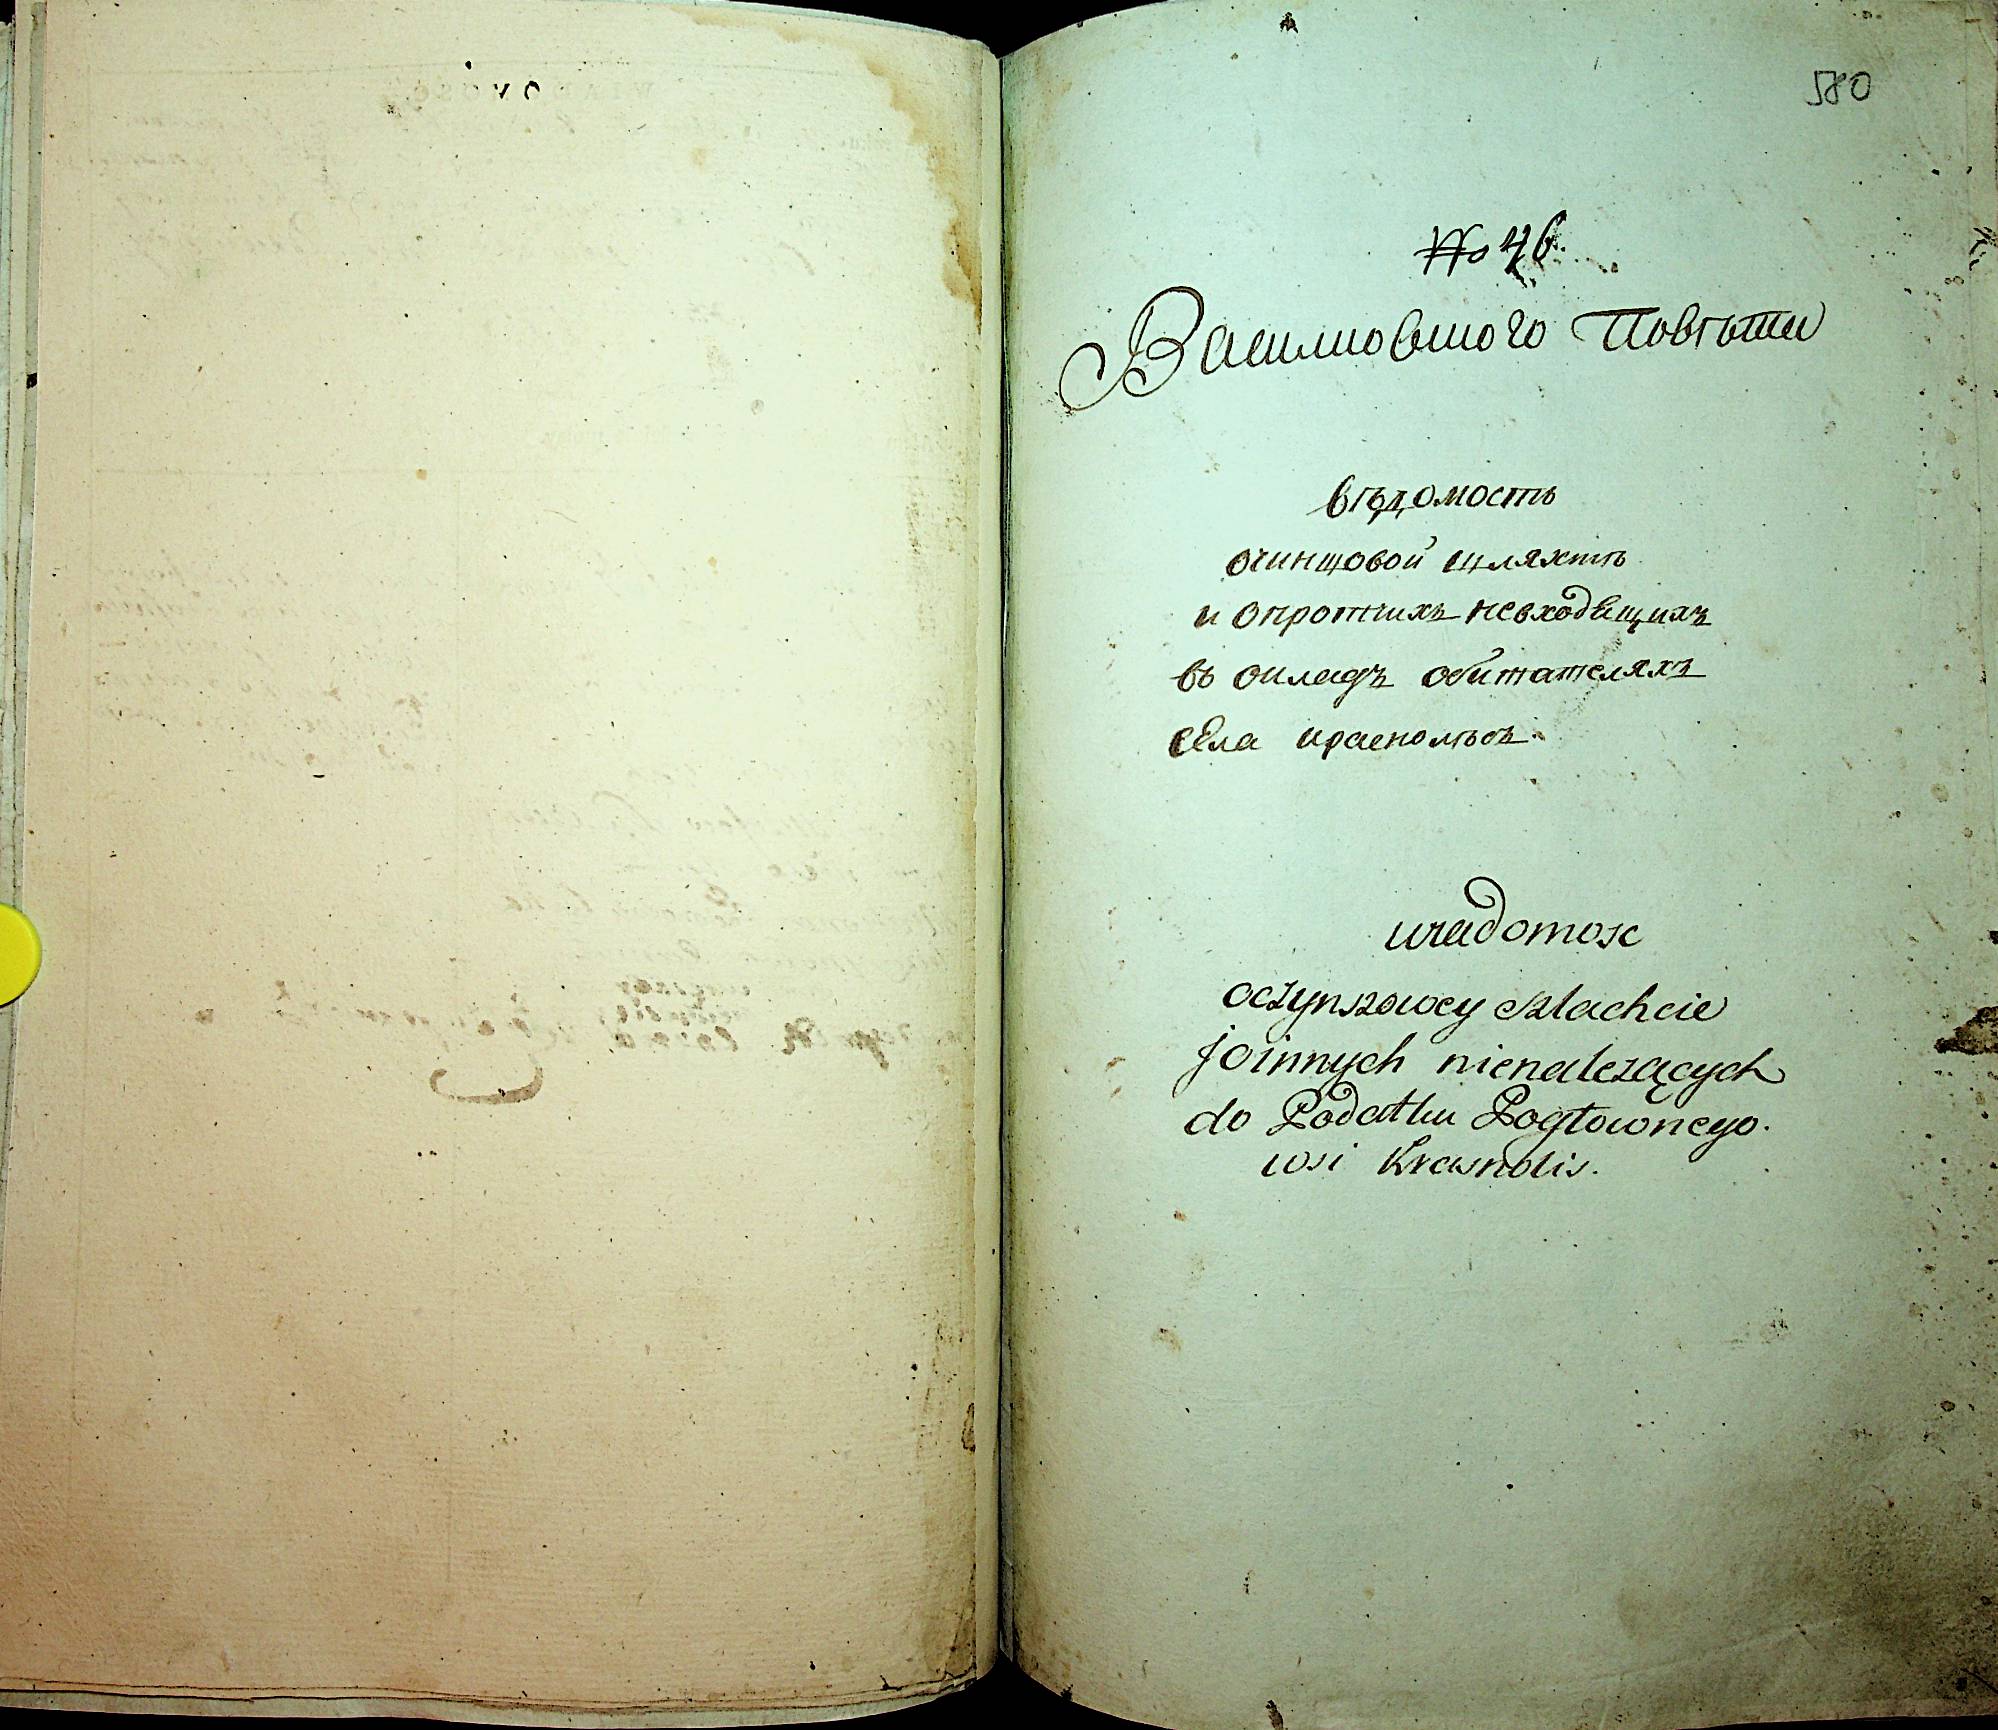 580
№ 46.
Василковского Повѣта
вѣдомость
очиншовой шляхтѣ
и опротчихъ невходящихъ
въ окладъ обитателяхъ
села краснолѣсъ.
wiadomosc
oczynszowey szlachcie
j oinnych nienależących
do Podatku Pogłownego.
wsi Krasnolis.